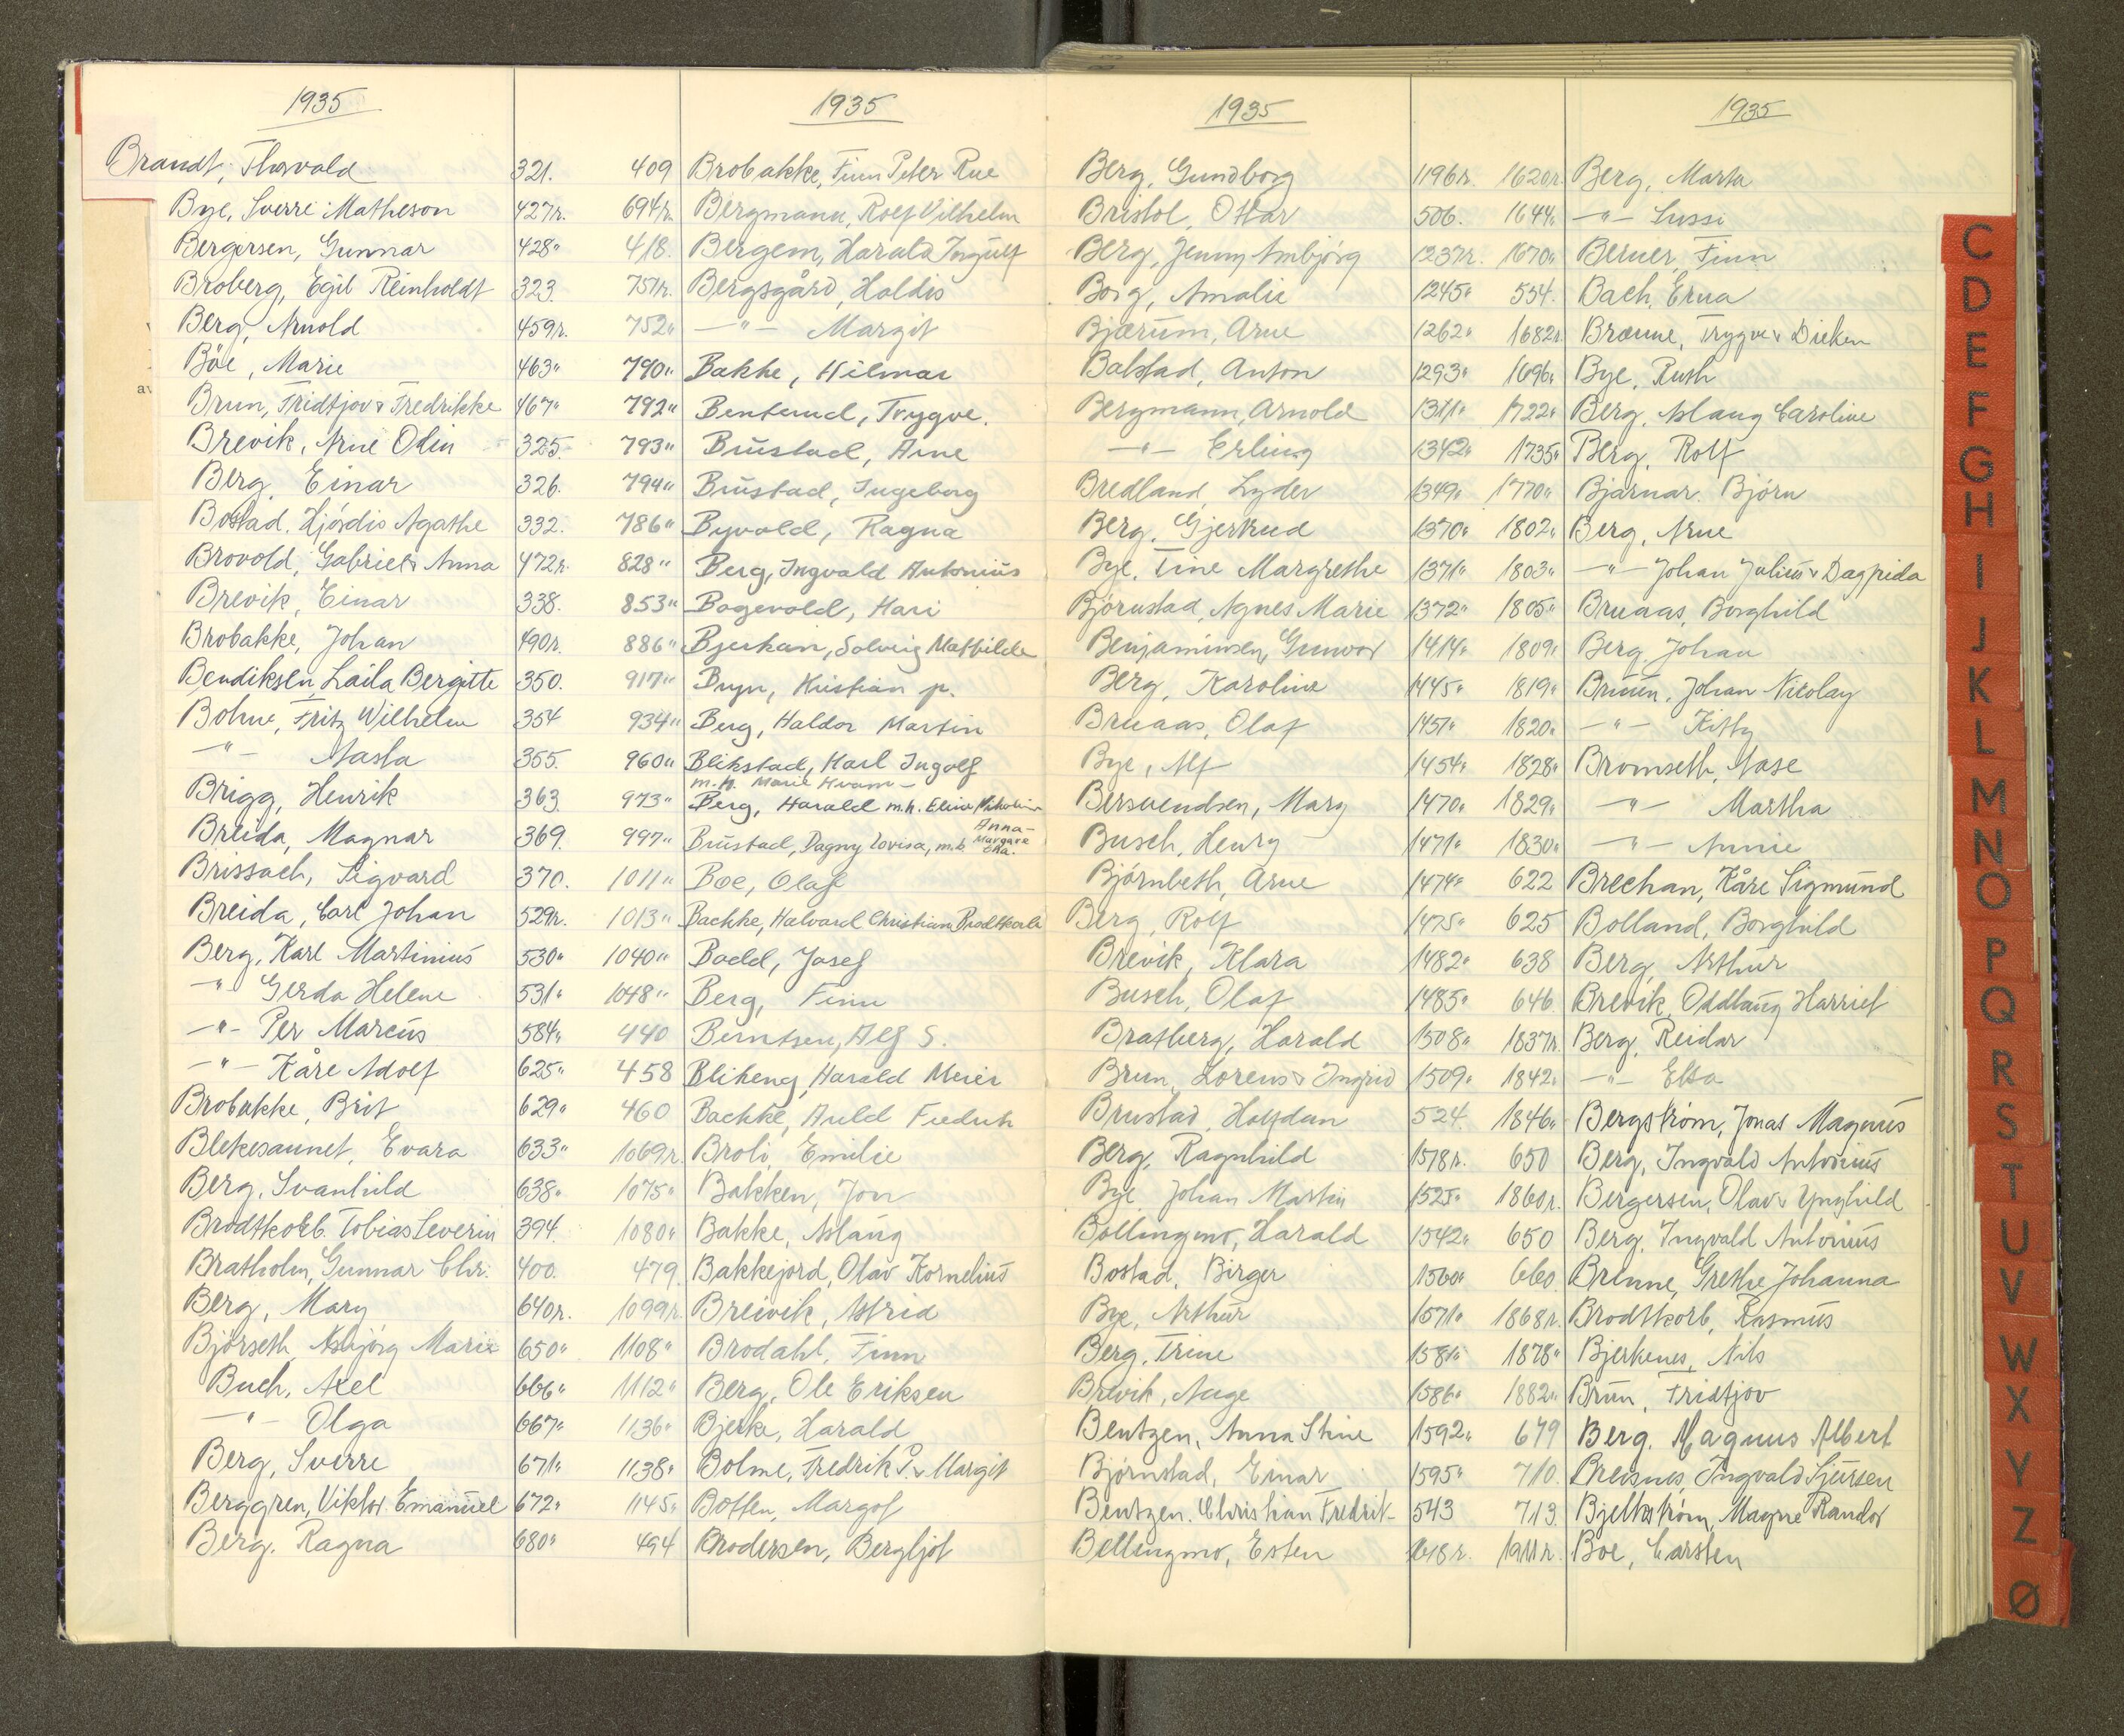 1935
Brandt, Thorvald 321.
Bye, Sverre Matheson 427r.
Bergersen, Gunnar 428"
Broberg, Egil Reinholdt 323.
Berg, Arnold 459r.
Böe, Marie 463"
Brun, Fridtjov & Fredrikke 467"
Brevik, Arne Odin 325.
Berg, Einar 326.
Bostad, Hjördis Agathe 332.
Brovold, Gabriel & Anna 472r.
Brevik, Einar 338.
Brobakke, Johan 490r.
Bendiksen, Laila Bergitte 350.
Bohne, Fritz Wilhelm 354
—"— Nasta 355.
Brigg, Henrik 363.
Breida, Magnar 369.
Brissach, Sigvard 370.
Breida, Carl Johan 529r.
Berg, Karl Martinius 530"
—"— Gerda Helene 531"
—"— Per Marcus 584"
—"— Kåre Adolf 625"
Brobakke, Brit 629"
Blekesaunet, Evara 633"
Berg, Svanhild 638"
Brodtkorb, Tobias Severin 394.
Bratholm, Gunnar Chr. 400.
Berg, Mary 640r.
Bjørseth, Asbjørg Marie 650"
Buch, Axel 666"
—"— Olga 667"
Berg, Sverre 671"
Berggren, Viktor Emanuel 672"
Berg, Ragna 680"
1935
409 Brobakke, Finn Peter Rue
694r. Bergmann, Rolf Vilhelm
418. Bergem, Harald Ingulf
751r. Bergsgård, Haldis
752" —"— Margit
790" Bakke, Hilmar
792" Bentsrud, Trygve.
793" Brustad, Arne
794" Brustad, Ingeborg
786" Byvold, Ragna
828" Berg, Ingvald Antonius
853" Bogevold, Kari
886" Bjerkan, Solveig Mathilde
917" Bryn, Kristian jr.
934" Berg, Haldor Martin
960" Blikstad, Karl Ingolf
m.h. Marie Kvam—
973" Berg, Harald m.h. Eline
997" Brustad, Dagny Lovisa, m.b. Anna-Margare Ella.
1011" Boe, Olaf
1013" Bachke, Halvard Christian Brodtkorb
1040" Bodd, Josef
1048" Berg, Finn
440 Berntsen, Alf S.
458 Blikeng, Harald Meier
460 Bachke, Auld Fredrik
1069r. Broli, Emilie
1075" Bakken, Jon
1080" Bakke, Aslaug
479. Bakkejord, Olav Kornelius
1099r. Breivik, Astrid
1108" Brodahl, Finn
1112" Berg, Ole Eriksen
1136" Bjerke, Harald
1138" Bolme, Fredrik P. & Margit
1145" Botten, Margot
494 Brodersen, Bergljot
1935
Berg, Gundborg 1196r.
Bristol, Ottar 506.
Berg, Jenny Arnbjørg 1237r.
Borg, Amalie 1245"
Bjærum, Arne 1262"
Balstad, Anton 1293"
Bergmann, Arnold 1311"
—"— Erling 1342"
Bredland, Lyder 1349"
Berg, Gjertrud 1370"
Bye, Tine Margrethe 1371"
Björnstad, Agnes Marie 1372"
Benjaminsen, Gunvor 1414"
Berg, Karoline 1445"
Bruaas, Olaf 1451"
Bye, Alf 1454"
Bersvendsen, Mary 1470"
Busch, Henry 1471"
Björnbeth, Arne 1474"
Berg, Rolf 1475"
Brevik, Klara 1482"
Busch, Olaf 1485"
Bratberg, Harald 1508"
Brun, Lorens & Ingrid 1509"
Brustad, Halfdan 524.
Berg, Ragnhild 1518r.
Bye, Johan Martin 1525"
Bollingmo, Harald 1542"
Bostad, Birger 1560"
Bye, Arthur 1571"
Berg, Trine 1581"
Brevik, Aage 1586"
Bentzen, Anna Stine 1592"
Bjørnstad, Einar 1595"
Bentzen, Christian Fredrik— 543
Bellingmo, Esten 1618r.
1935
1620r. Berg, Marta
1644" —"— Sussi
1670" Berner, Finn
554. Bach, Erna
1682r. Brænne, Trygve & Dicken
1696" Bye, Ruth
1722" Berg, Aslaug Caroline
1735" Berg, Rolf
1770" Bjarnar, Björn
1802" Berg, Arne
1803" —"— Johan Julius & Dagfrida
1805" Bruaas, Borghild
1809" Berg, Johan
1819" Bruun, Johan Nicolay
1820" —"— Kitty
1828" Bromseth, Aase
1829" —"— Martha
1830" —"— Annie
622 Brechan, Kåre Sigmund
625 Bolland, Borghild
638 Berg, Arthur
646 Brevik, Oddlaug Harriet
1837r. Berg, Reidar
1842" —"— Elsa
1846" Bergström, Jonas Magnus
650 Berg, Ingvald Antonius
1860r. Bergersen, Olav & Ynghild
650 Berg, Ingvald Antonius
660. Brenne, Grethe Johanna
1868r. Brodtkorb, Rasmus
1878" Bjerkenes, Nils
1882" Brun, Fridtjov
679 Berg, Magnus Albert
710. Breisnes, Ingvald Sjursen
713. Bjelkstrøm, Magne Randor
1911r. Boe, Carsten
C
D
E
F
G
H
I
J
K
L
M
N
O
P
Q
R
S
T
U
V
W
X
Y
Z
Ø